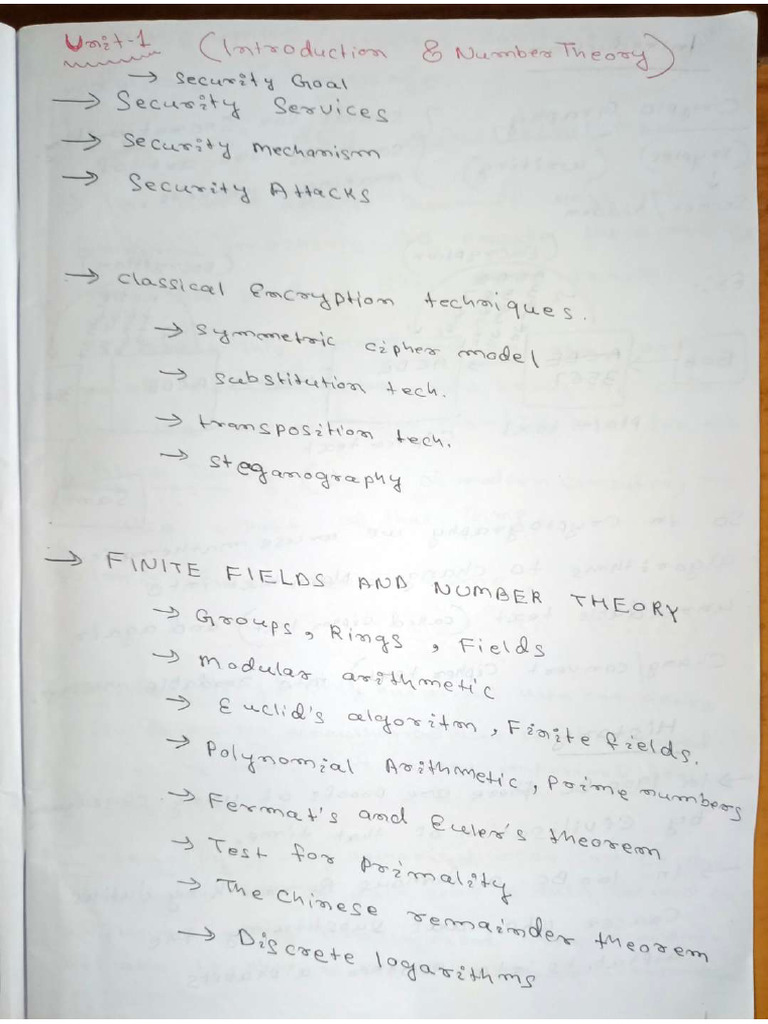 Unit-1 (Introduction & Number Theory)
→ Security Goal
→ Security Services
→ Security mechanism
→ Security Attacks
→ Classical Encryption techniques.
→ Symmetric cipher model
→ substitution tech.
→ transposition tech.
→ steganography
→ FINITE FIELDS AND NUMBER THEORY
→ Groups, Rings, Fields
→ Modular arithmetic
→ Euclid's algoritm, Finite fields.
→ Polynomial Arithmetic, Prime numbers
→ Fermat's and Euler's theorem
→ Test for primality
→ The Chinese remainder theorem
→ Discrete logarithms